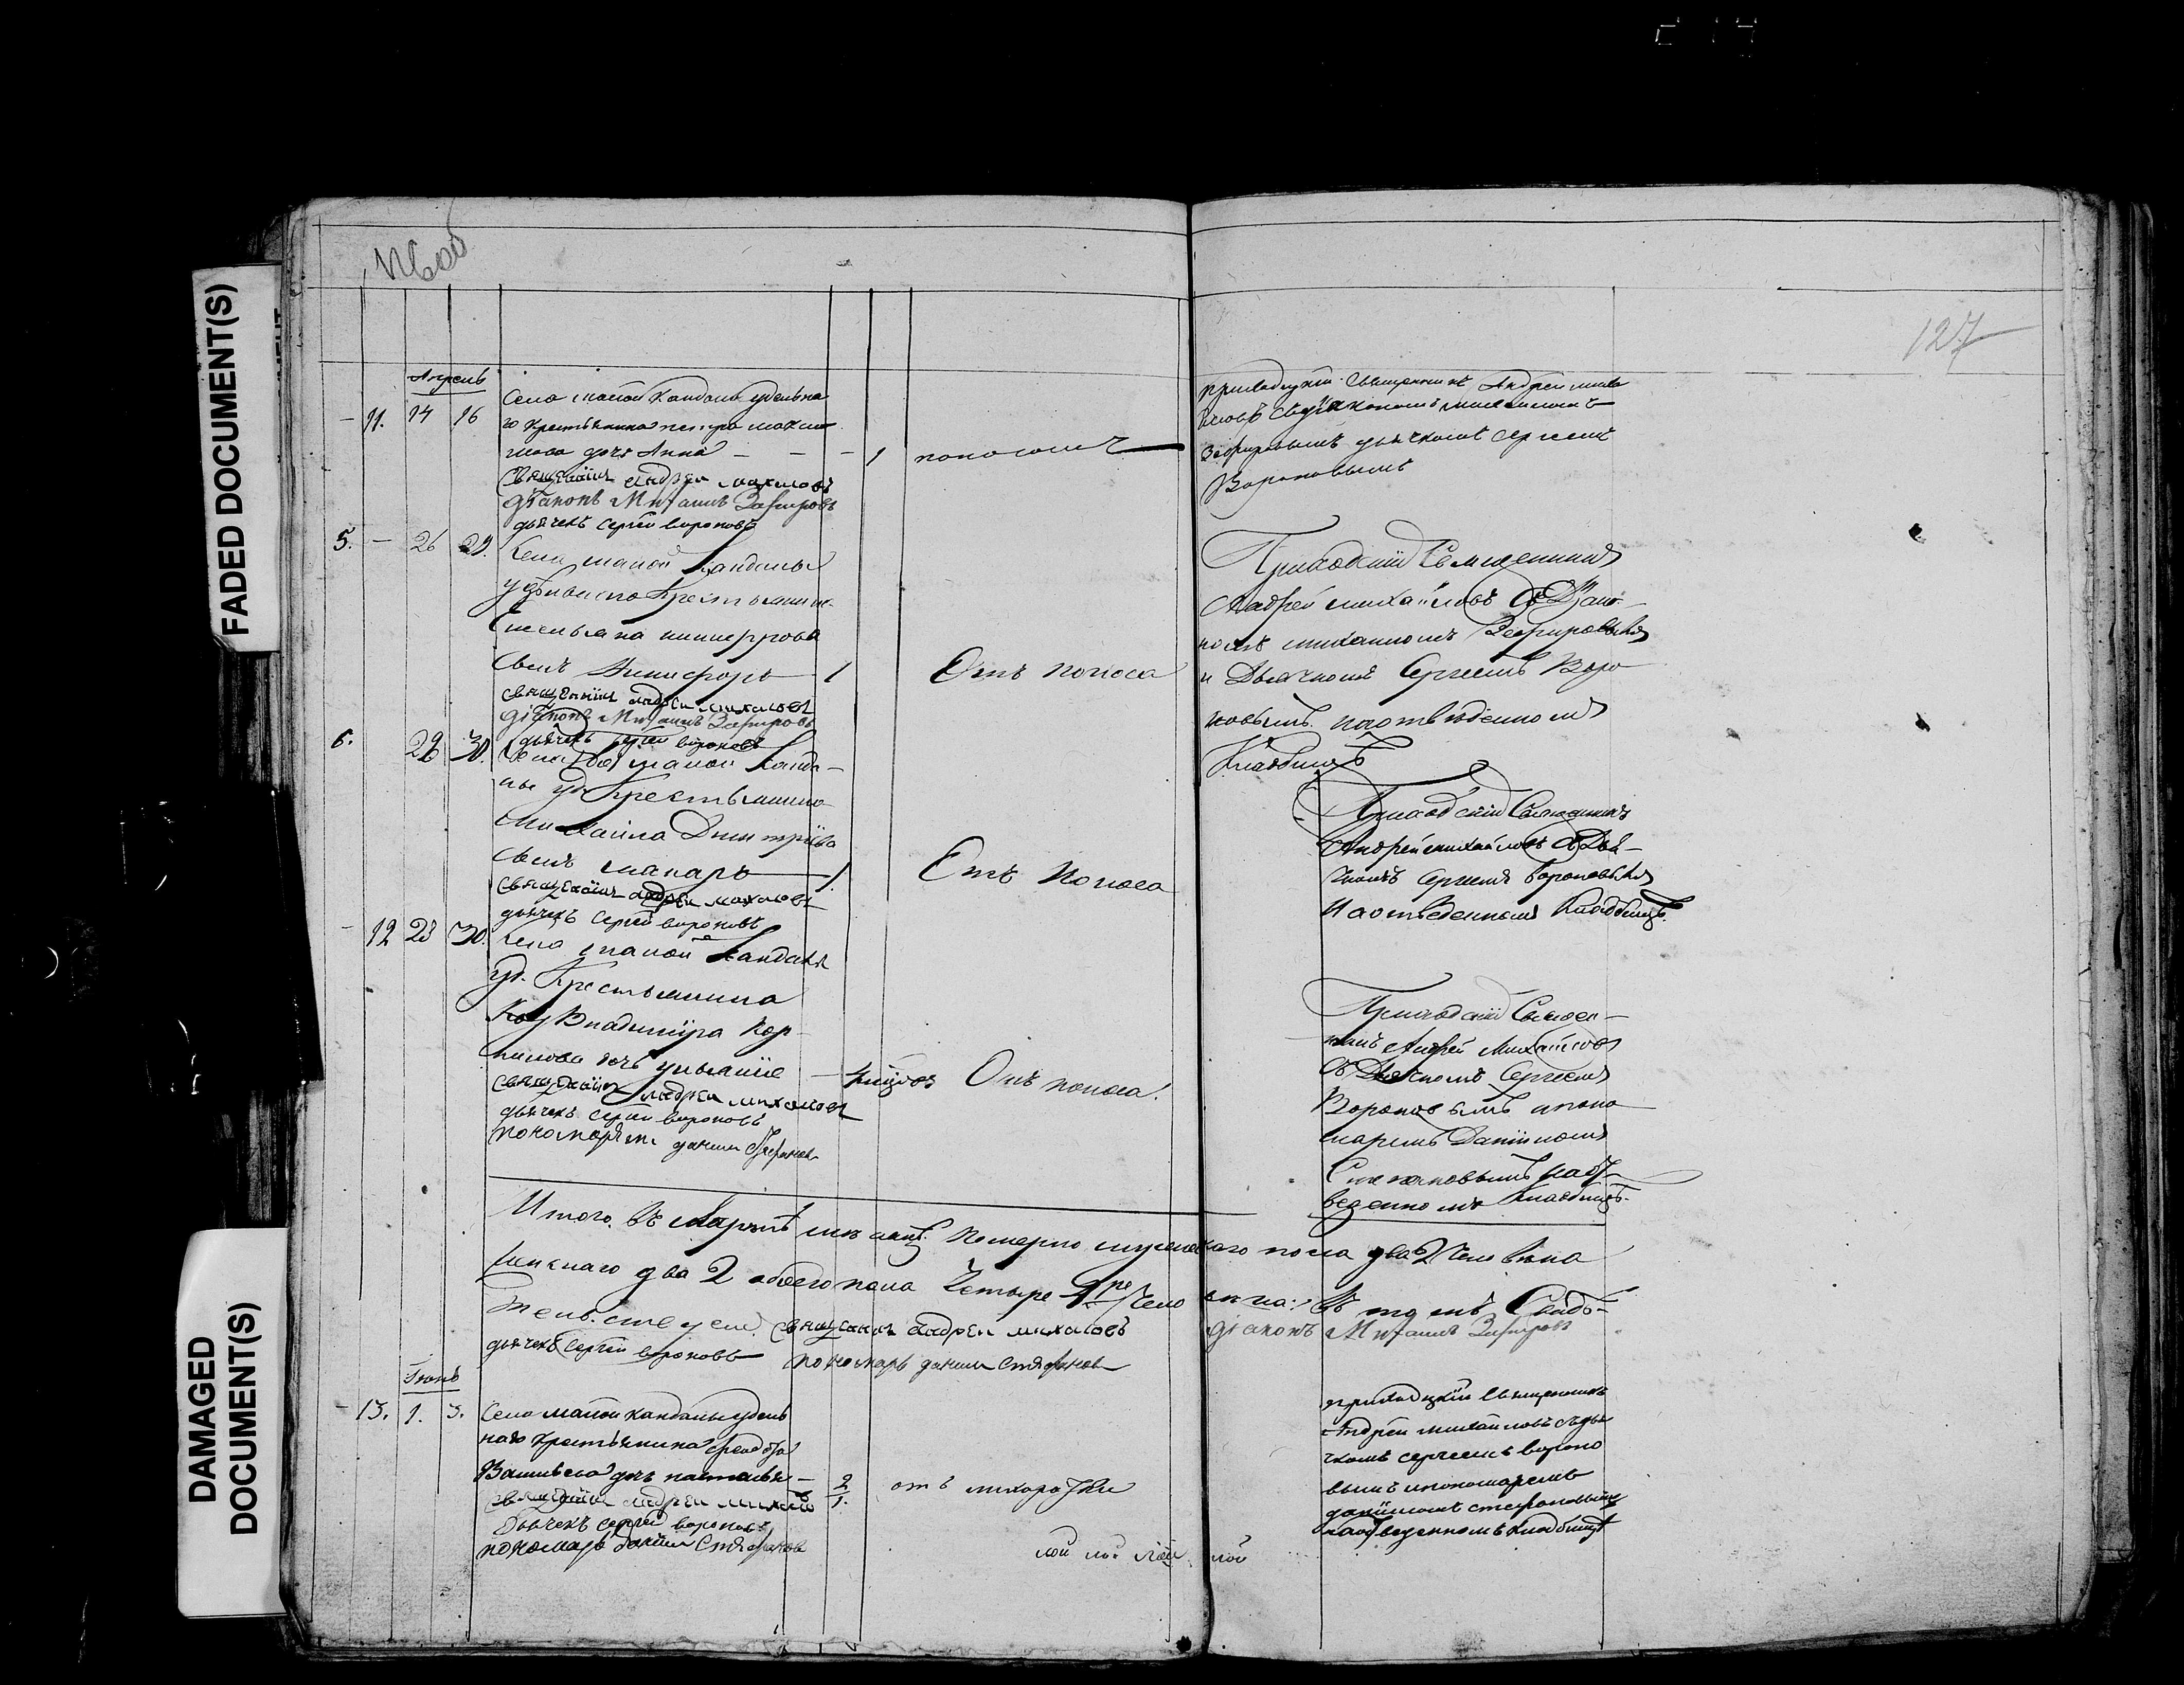 FADED DOCUMENT(S)
DAMAGED DOCUMENT(S)
127
Апрель
11. 14 16
Село малой Кандалы удельна
го крестьянина петра макси
мова дочь Анна — — — 1 поносомъ
Священникъ андреи михаловъ
діаконъ Михаилъ Зефировъ
дьячекъ сергей вороновъ
приходский священникъ Андрей михаи
ловъ съ діакономъ михаиломъ
Зефировымъ дьячкомъ сергеемъ
Вороновымъ
5. — 26 29.
Села малой Кандалы
удѣльнаго крестьянина
сынъ Никифоръ 1 Отъ поноса
священникъ андреи михаловъ
діаконъ Михаилъ Зефировъ
дьячекъ сергей вороновъ
Приходскій Священникъ
Андрей михайловъ съ Діако-
номъ михаиломъ Зефировымъ
и Дьячкомъ Сергеемъ Воро
новымъ наотведенномъ
Кладбищѣ
6. 28 30.
Села малой Канда-
лы уд. Крестьянина
Михаила Дмитріева
сынъ макаръ 1. Отъ поноса
священникъ андреи михаловъ
дьячекъ сергей вороновъ
Приходскій Священникъ
Андрей михайловъ съ Дья-
чкомъ Сергеемъ Вороновымъ
Наотведенномъ Кладбищѣ.
— 12 28 30.
Села малой Кандалы
уд. Крестьянина
Владимира Кор-
нилова дочь — Отъ поноса.
священникъ андреи михаловъ
дьячекъ сергей вороновъ
пономарь данилъ Стефановъ
Приходскій Священ-
никъ Андрей Михайловъ
съ Дьячкомъ Сергеемъ
Вороновымъ ипоно
маремъ Даніиломъ
Стефановымъ наот-
веденномъ Кладбищѣ.
Итого въ мѣсяцѣ Померло мужескаго пола два 2 человѣка
женскаго два 2 обоего пола Четыре 4 Человѣка: Въ томъ Свидѣ-
тельствуемъ. священникъ андреи михаловъ діаконъ Михаилъ Зефировъ
дьячекъ сергей вороновъ пономарь данилъ Стефановъ
Іюнь
— 13. 1. 3.
Село малой кандалы удель
наго крестьянина
Васильева дочь наталья — 2 отъ лихорадки
священникъ андреи михало 1.
Дьячекъ сергей вороновъ
пономарь данилъ Стефановъ
приходцкій священникъ
Андрей михаиловъ съ дья
чкомъ сергеемъ вороно
вымъ ипономаремъ
даніиломъ стефановымъ
наотведенномъ кладбищѣ